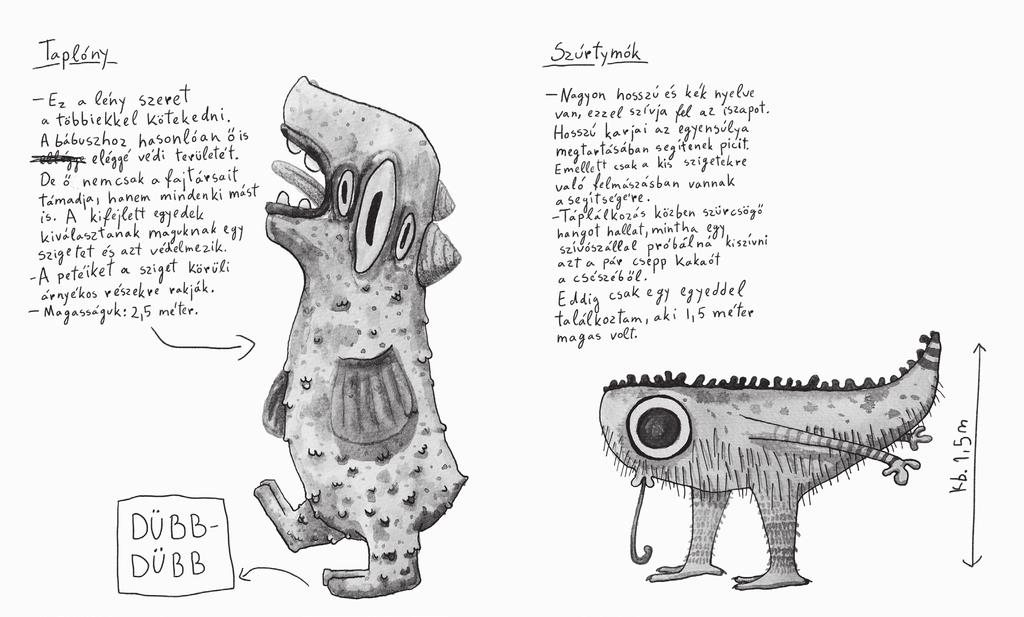 Taplóny
– Ez a lény szeret
a többiekkel kötekedni.
A bábuszhoz hasonlóan ő is
eléggé védi területét.
De ő nemcsak a fajtársait
támadja, hanem mindenki mást
is. A kifejlett egyedek
kiválasztanak maguknak egy
szigetet és azt védelmezik.
- A petéiket a sziget körüli
árnyékos részekre rakják.
– Magasságuk: 2,5 méter.
DÜBB-
DÜBB
Szúrtymók
– Nagyon hosszú és kék nyelve
van, ezzel szívja fel az iszapot.
Hosszú karjai az egyensúlya
megtartásában segítenek picit.
Emellett csak a kis szigetekre
való felmászásban vannak
a segítségére.
- Táplálkozás közben szürcsögő
hangot hallat, mintha egy
szívószállal próbálná kiszívni
azt a pár csepp kakaót
a csészéből.
Eddig csak egy egyeddel
találkoztam, aki 1,5 méter
magas volt.
kb. 1,5 m